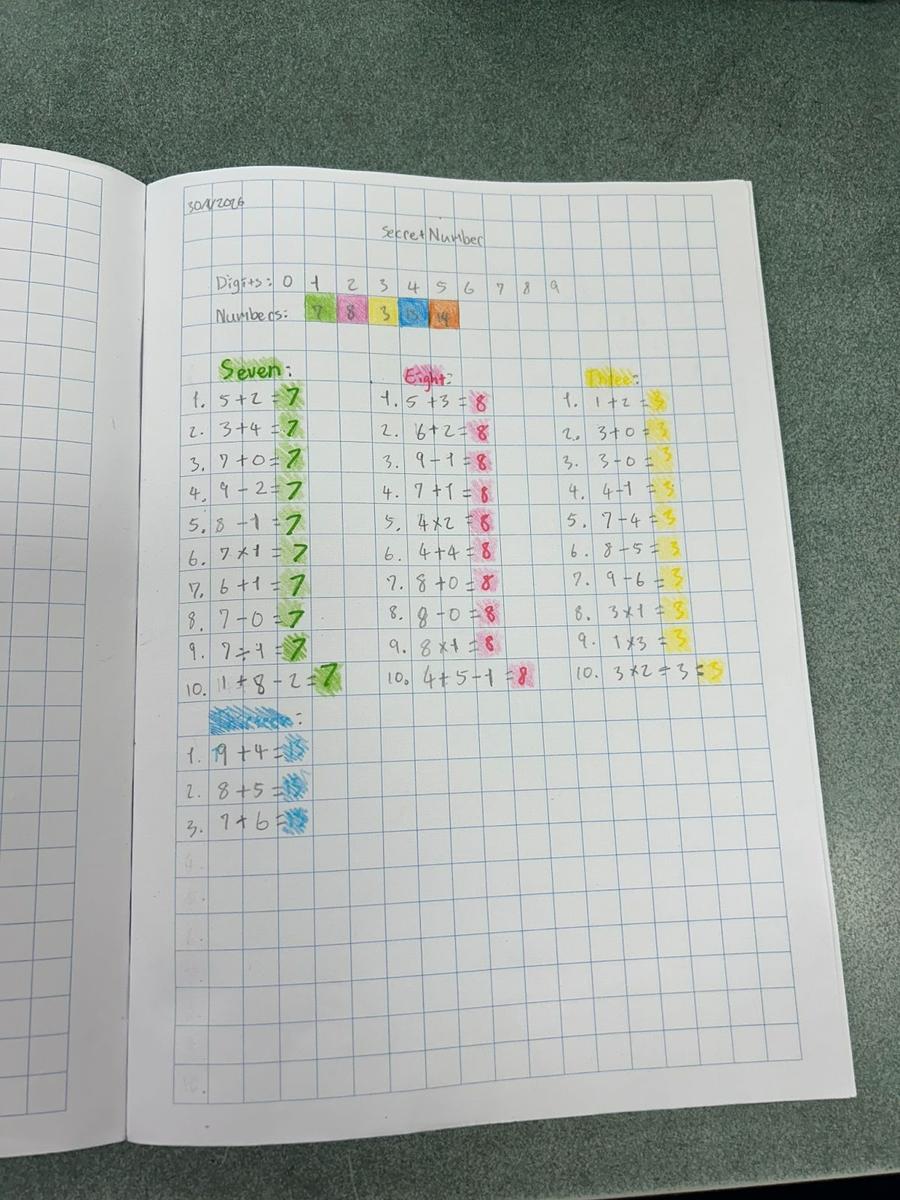 30/1/2026
Secret Number
Digits: 0 1 2 3 4 5 6 7 8 9
Numbers: 7 8 3 13 14
Seven:
1. 5+2=7
2. 3+4=7
3. 7+0=7
4. 9-2=7
5. 8-1=7
6. 7×1=7
7. 6+1=7
8. 7-0=7
9. 7÷1=7
10. 1+8-2=7
Eight:
1. 5+3=8
2. 6+2=8
3. 9-1=8
4. 7+1=8
5. 4×2=8
6. 4+4=8
7. 8+0=8
8. 8-0=8
9. 8×1=8
10. 4+5-1=8
Three:
1. 1+2=3
2. 3+0=3
3. 3-0=3
4. 4-1=3
5. 7-4=3
6. 8-5=3
7. 9-6=3
8. 3×1=3
9. 1×3=3
10. 3×2-3=3
1. 9+4=13
2. 8+5=13
3. 7+6=13
4.
10.